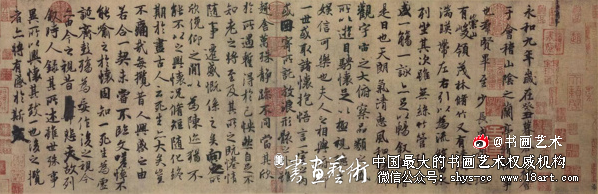 永和九年歲在癸丑
于會稽山陰之蘭亭
也群賢畢至少長
有崇山峻領茂林脩竹又有
湍暎帶左右引以為流
列坐其次雖無絲竹
盛一觴一詠亦足以暢敘
是日也天朗氣清惠風和
觀宇宙之大俯察品類
所以遊目騁懷足以極視
娛信可樂也夫人之相與
世或取諸懷抱悟言一
或因寄所託放浪形骸
趣舍萬殊靜躁不同當其欣
於所遇蹔得於己怏然自足不
知老之將至及其所之既惓情
隨事遷感慨係之矣向之
欣俛仰之閒以為陳迹猶不
能不以之興懷況脩短隨化終
期於盡古人云死生亦大矣豈
不痛哉每攬昔人興感之由
若合一契未嘗不臨文嗟悼不
能喻之於懷固知一死生為虛
誕齊彭殤為妄作後之視今
今之視昔悲夫故列
敘時人錄其所述雖世殊事
異所以興懷其致一也後之攬
者亦將有感於斯
書畫藝術
@书画艺术
中国最大的书画艺术权威机构
微信公众号：shys-cc www.18art.cc